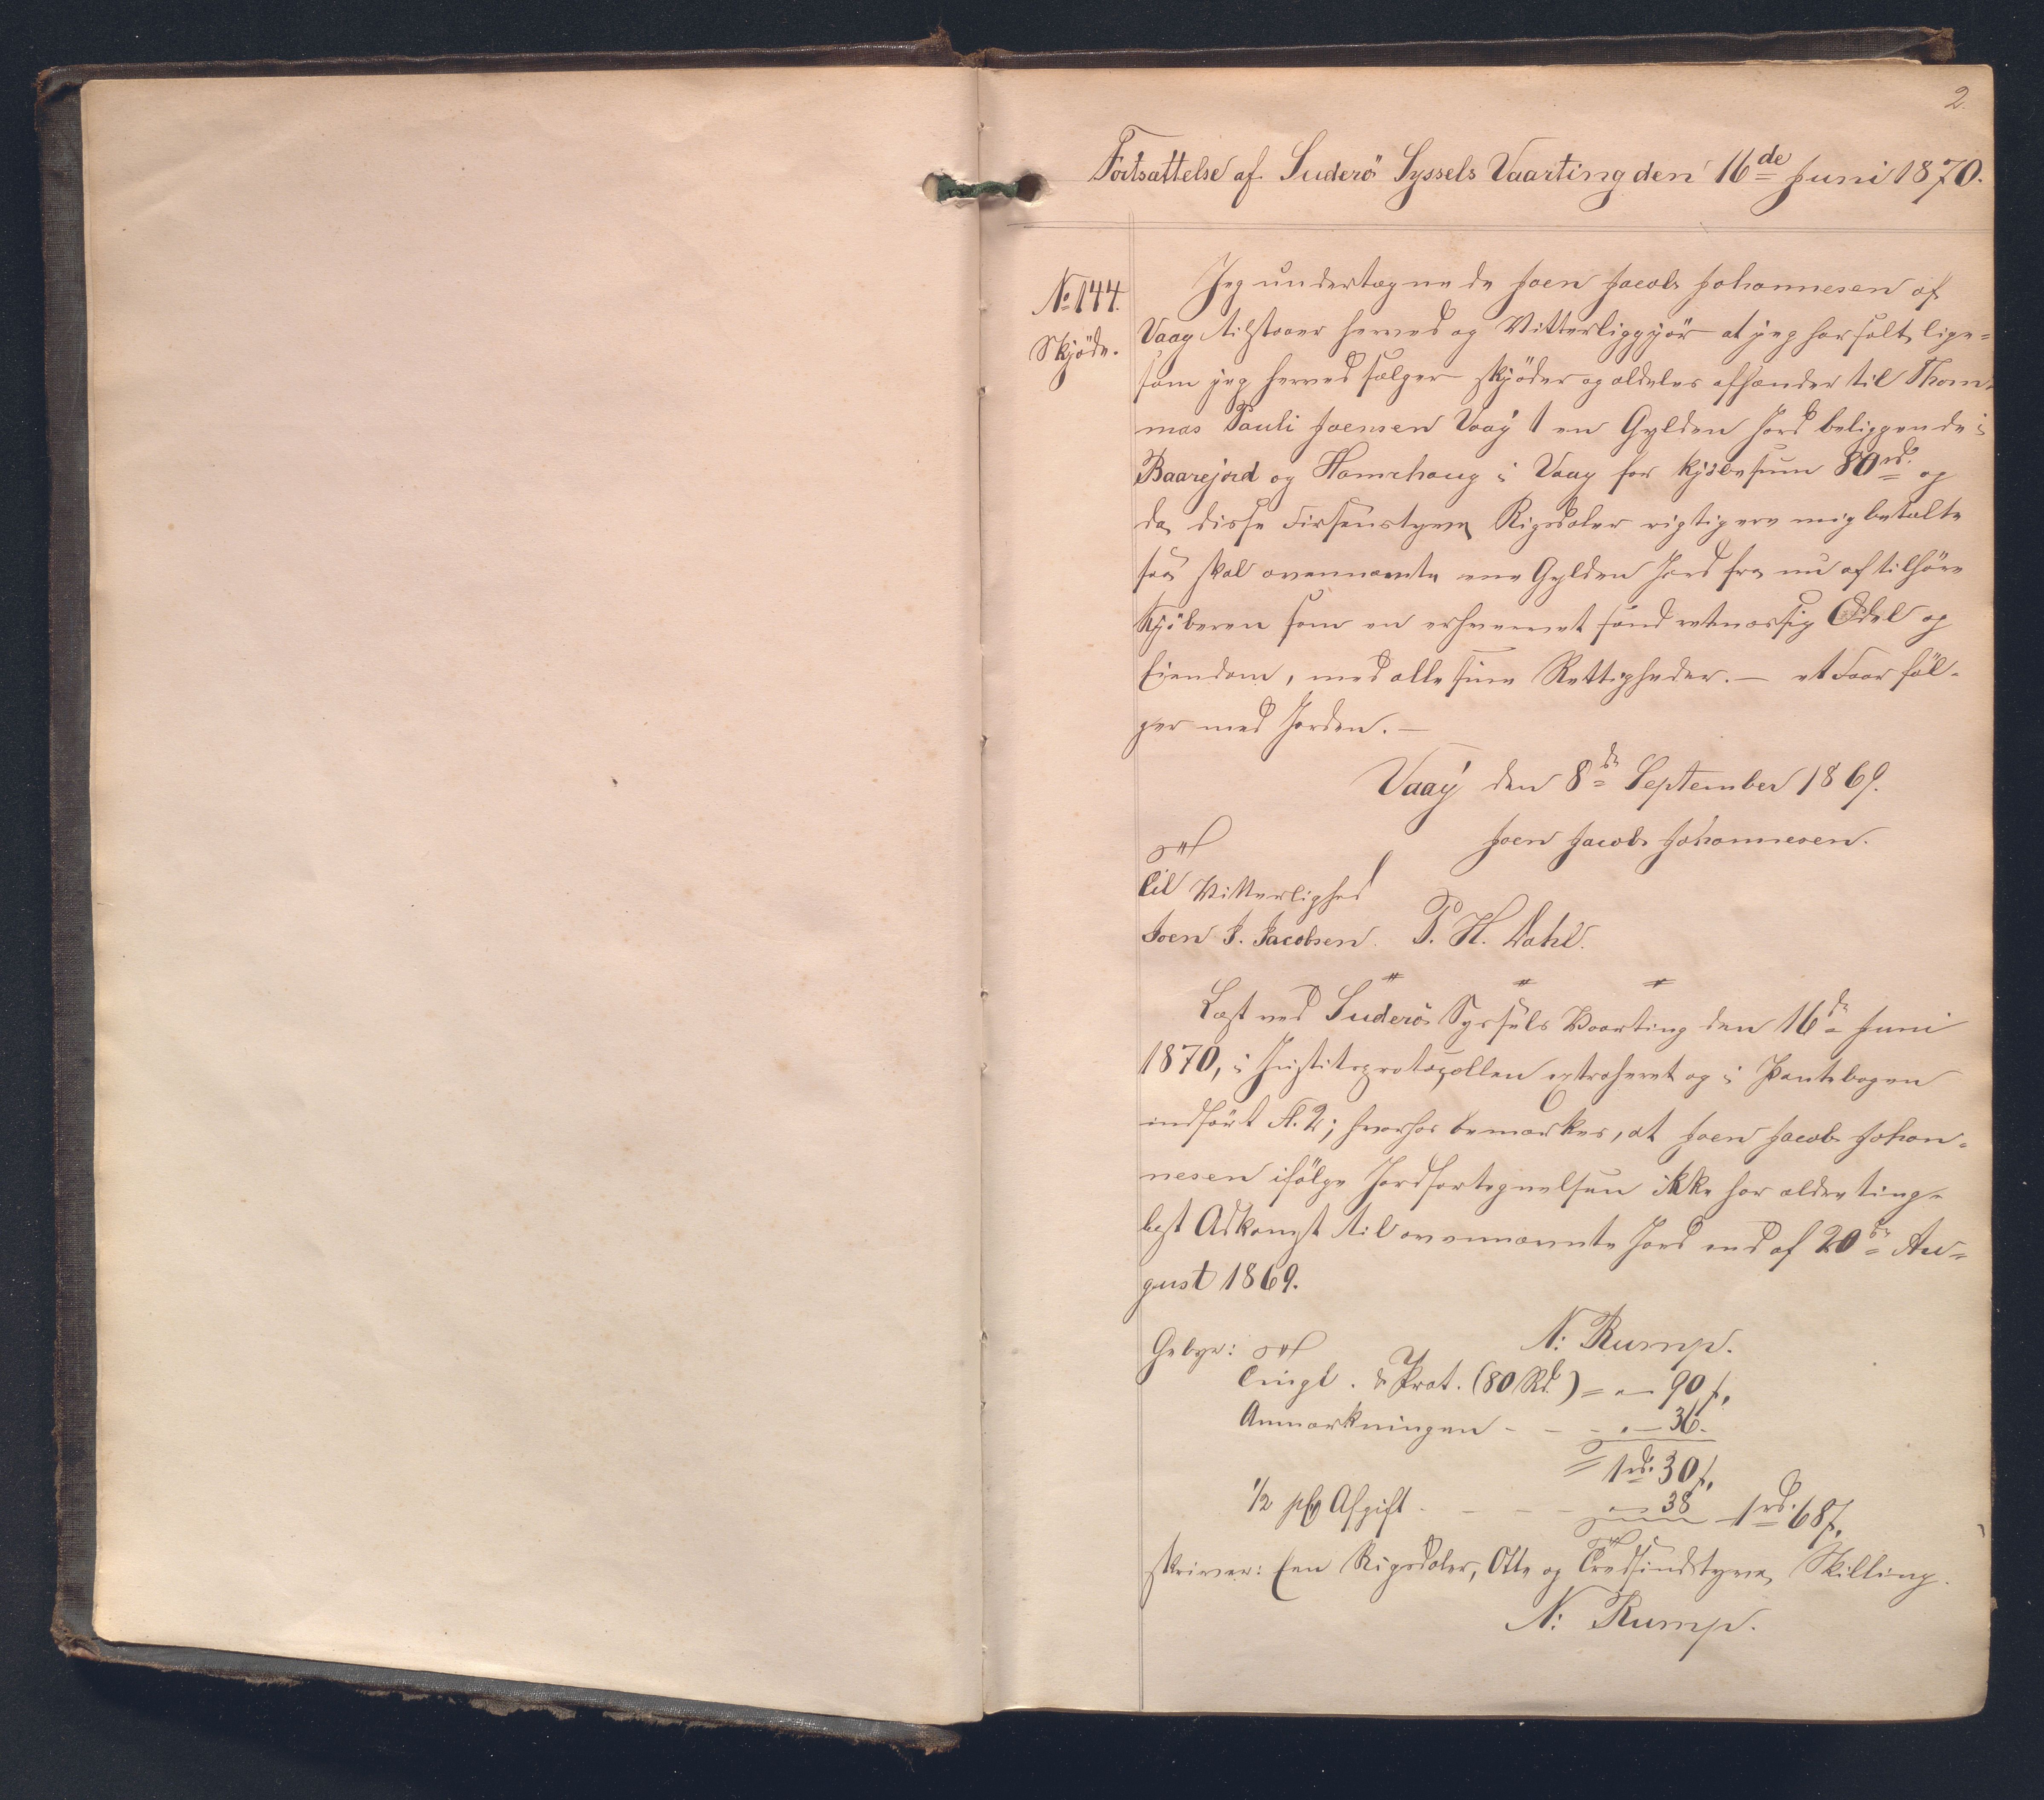 2.
Fortsættelse af Suderö Syssels Vaarting den 16de Juni 1870.
No 144.
Skjöde.
Jeg undertegnede Joen Jacob Johannesen af
Vaag tilstaaer herved og Vitterliggjör at jeg har solt, lige=
som jeg herved sælger skjöder og aldeles afhænder til Thom=
mas Pauli Joensen Vaag 1 en Gylden Jord beliggende i
Baarejord og Hamrhaug i Vaag for Kjöbesum 80 rd. og
da disse Firsenstyve Rigsdaler rigtig ere mig betalte
saa skal ovennævnte ene Gylden Jord fra nu af tilhöre
Kjöberen som en erhvervet sand retmæssig Odel og
Eiendom, med alle sine Rettigheder. — et Faar föl-
ger med Jorden. —
Vaag den 8de September 1869.
Joen Jacob Johannesen.
Til Vitterlighed
Joen J. Jacobsen. P. H. Dahl.
Læst ved Suderö Syssels Vaarting den 16de Juni
1870, i Justitsprotocollen extraheret og i Pantebogen
indfört Fl. 2; hvorhos bemærkes, at Joen Jacob Johan=
nesen ifölge Jordfortegnelsen ikke har ældre ting-
læst Adkomst til ovennævnte Jord end af 20de Au=
gust 1869.
N: Rump.
Gebyr:
Tingl. & Prot. (80 Rd.) = " — 90 s,
Anmærkningen - - - " — 36 -
1 rd. 30 s,
1/2 pCt Afgift - - - - " — 38 1 rd. 68 s,
skriver: Een Rigsdaler, Otte og Tredsindstyve Skilling.
N: Rump.